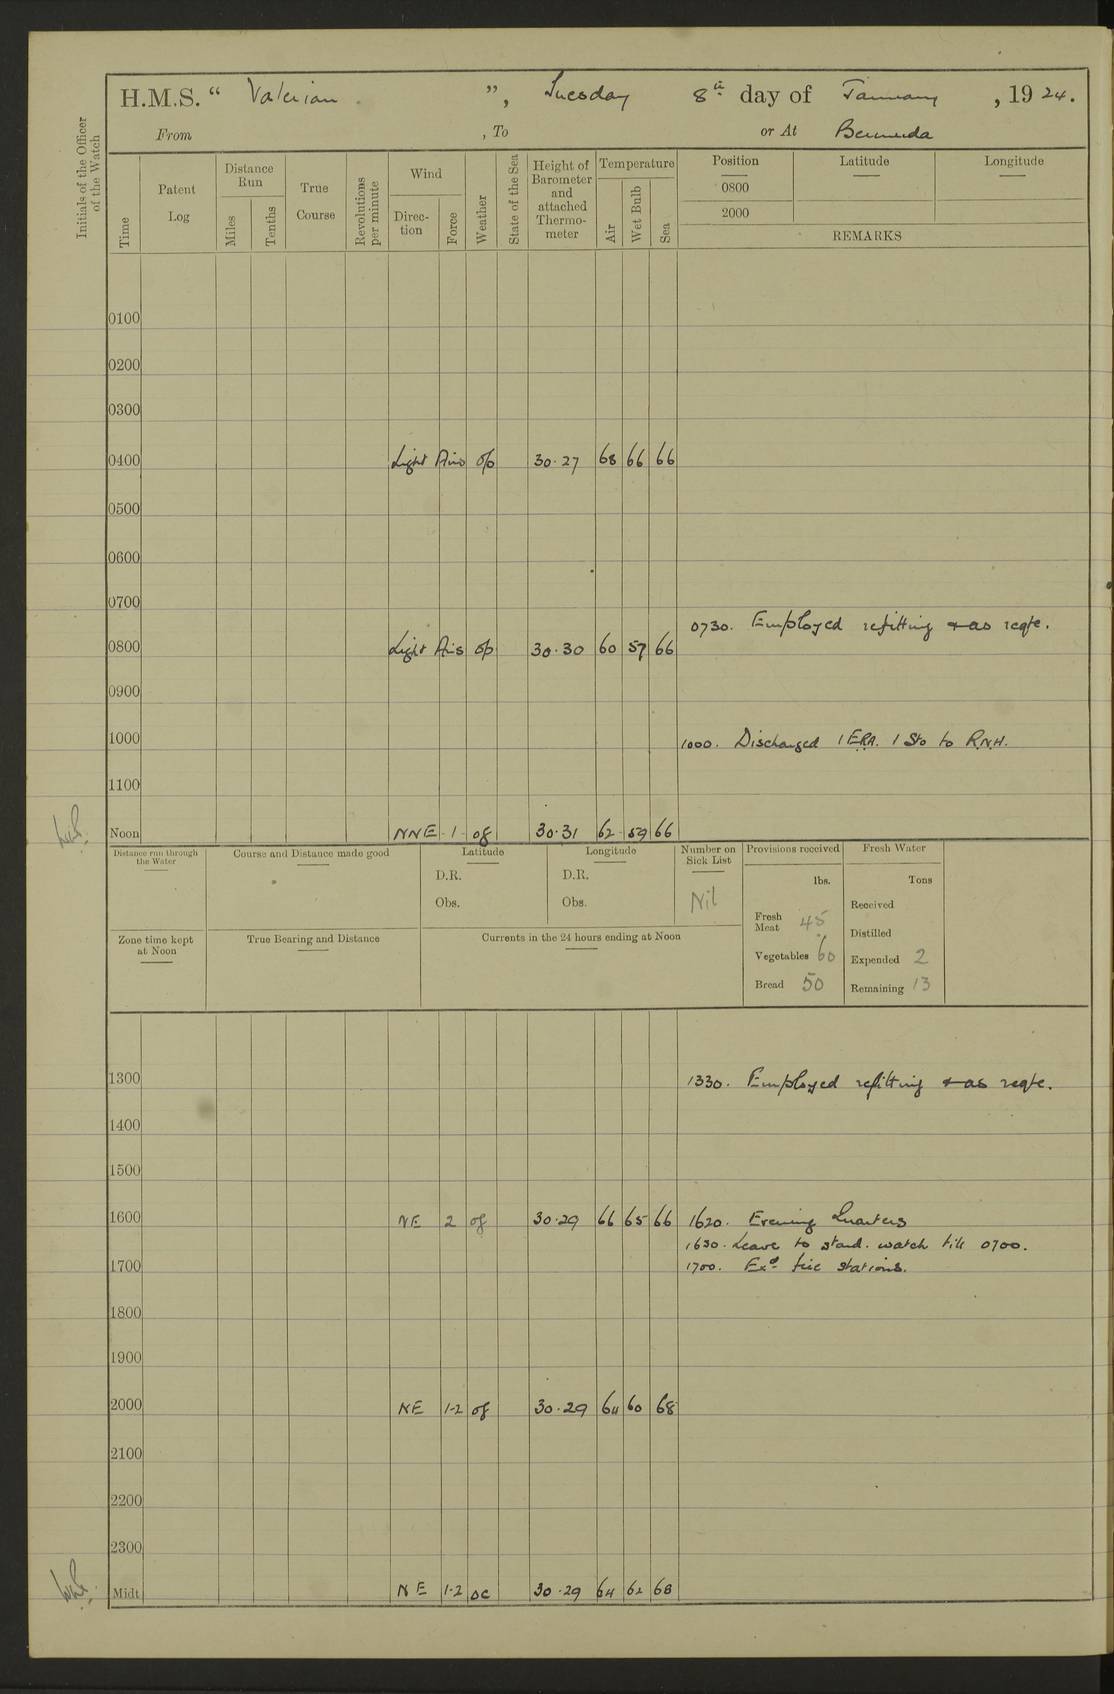 H.M.S. “ Valerian ”, Tuesday 8th day of January, 1924.
From , To or At Bermuda
Initials of the Officer of the Watch
Time
Patent Log
Distance Run
Miles
Tenths
True Course
Revolutions per minute
Wind
Direc-tion
Force
Weather
State of the Sea
Height of Barometer and attached Thermo-meter
Temperature
Air
Wet Bulb
Sea
Position Latitude Longitude
0800
2000
REMARKS
0100
0200
0300
0400 Light Airs op 30.27 68 66 66
0500
0600
0700
0730. Employed refitting & as reqte.
0800 Light Airs op 30.30 60 57 66
0900
1000 1000. Discharged 1 ERA. 1 Sto to R.N.H.
1100
Noon NNE 1 of 30.31 62 59 66
Distance run through the Water
Course and Distance made good
Latitude
D.R.
Obs.
Longitude
D.R.
Obs.
Number on Sick List
Nil
Provisions received
lbs.
Fresh Meat 45
Vegetables 60
Bread 50
Fresh Water
Tons
Received
Distilled
Expended 2
Remaining 13
Zone time kept at Noon
True Bearing and Distance
Currents in the 24 hours ending at Noon
1300 1330. Employed refitting & as reqte.
1400
1500
1600 NE 2 of 30.29 66 65 66 1620. Evening Quarters
1630. Leave to stand. watch till 0700.
1700 1700. Exd fire stations.
1800
1900
2000 NE 1-2 of 30.29 64 60 68
2100
2200
2300
Midt NE 1-2 oc 30.29 64 62 68